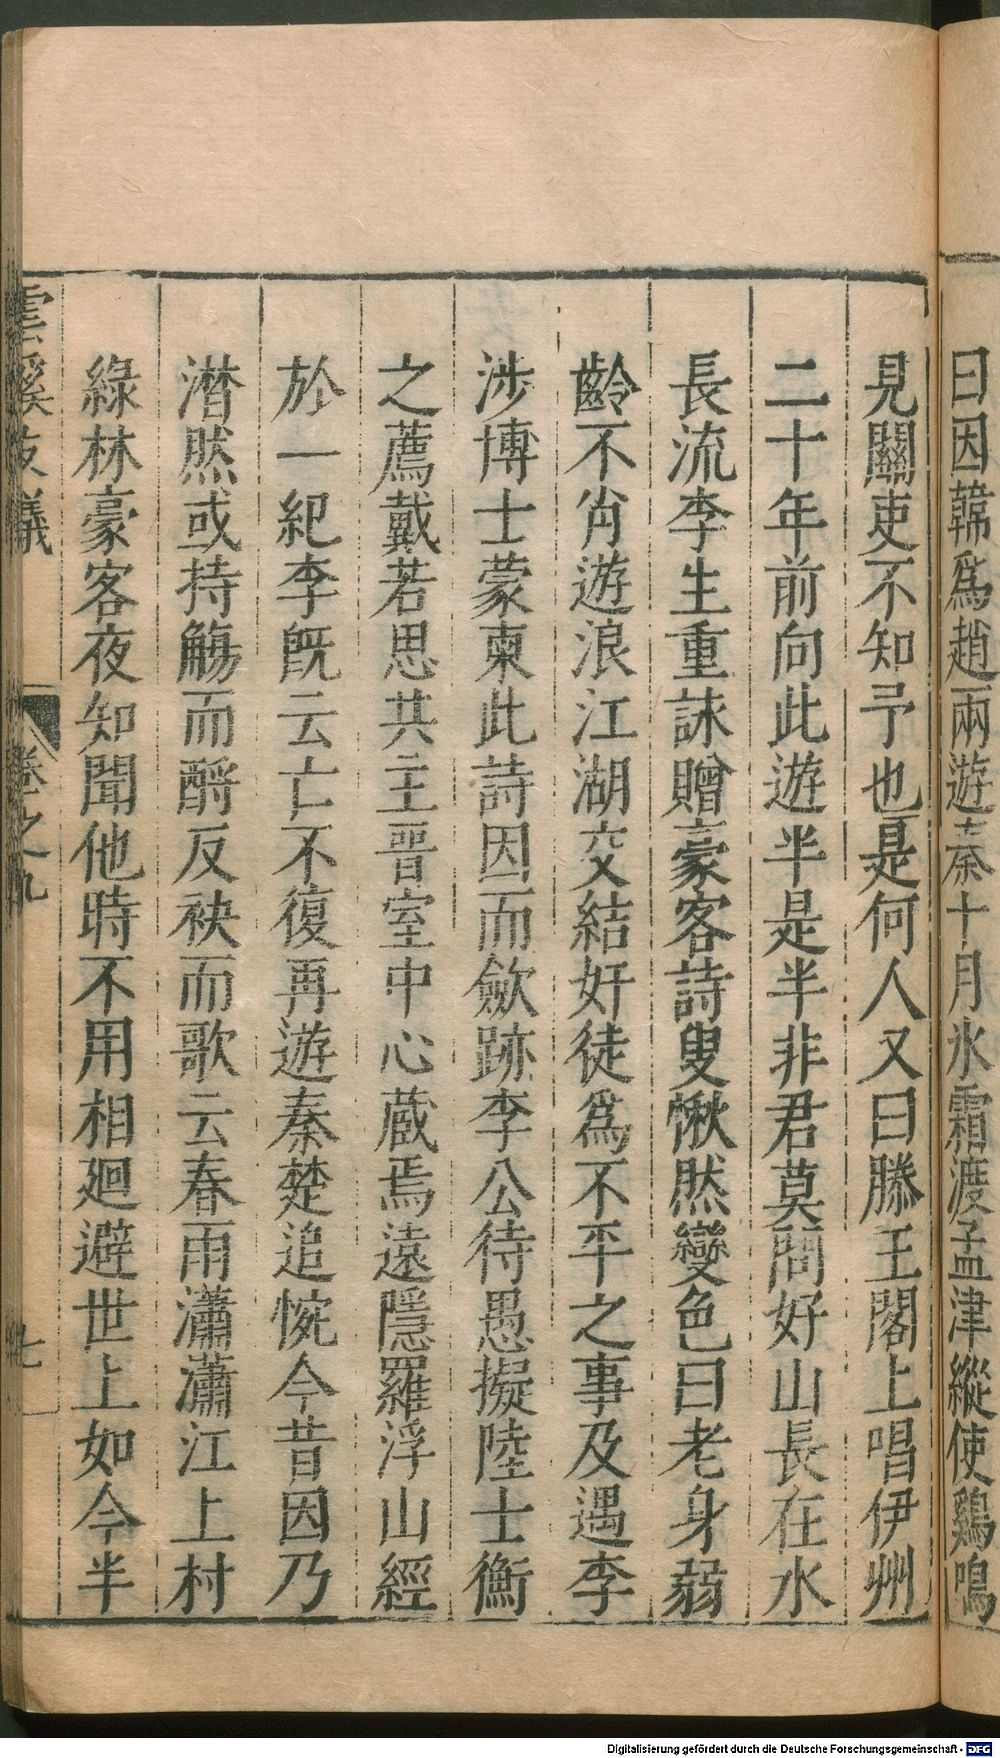 曰因韓爲趙兩遊秦十月氷霜渡孟津縱使鷄鳴
見關吏不知予也是何人又曰滕王閣上唱伊州
二十年前向此遊半是半非君莫問好山長在水
長流李生重詠贈豪客詩叟愀然變色曰老身弱
齡不肖遊浪江湖交結奸徒爲不平之事及遇李
涉博士蒙柬此詩因而歛跡李公待愚擬陸士衡
之薦戴若思共主晋室中心蔵焉遠隱羅浮山經
於一紀李旣云亡不復再遊秦楚追惋今昔因乃
潸然或持觴而酹反袂而歌云春雨瀟瀟江上村
綠林豪客夜知聞他時不用相廻避世上如今半
雲溪友議 卷之九 七
Digitalisierung gefördert durch die Deutsche Forschungsgemeinschaft - DFG